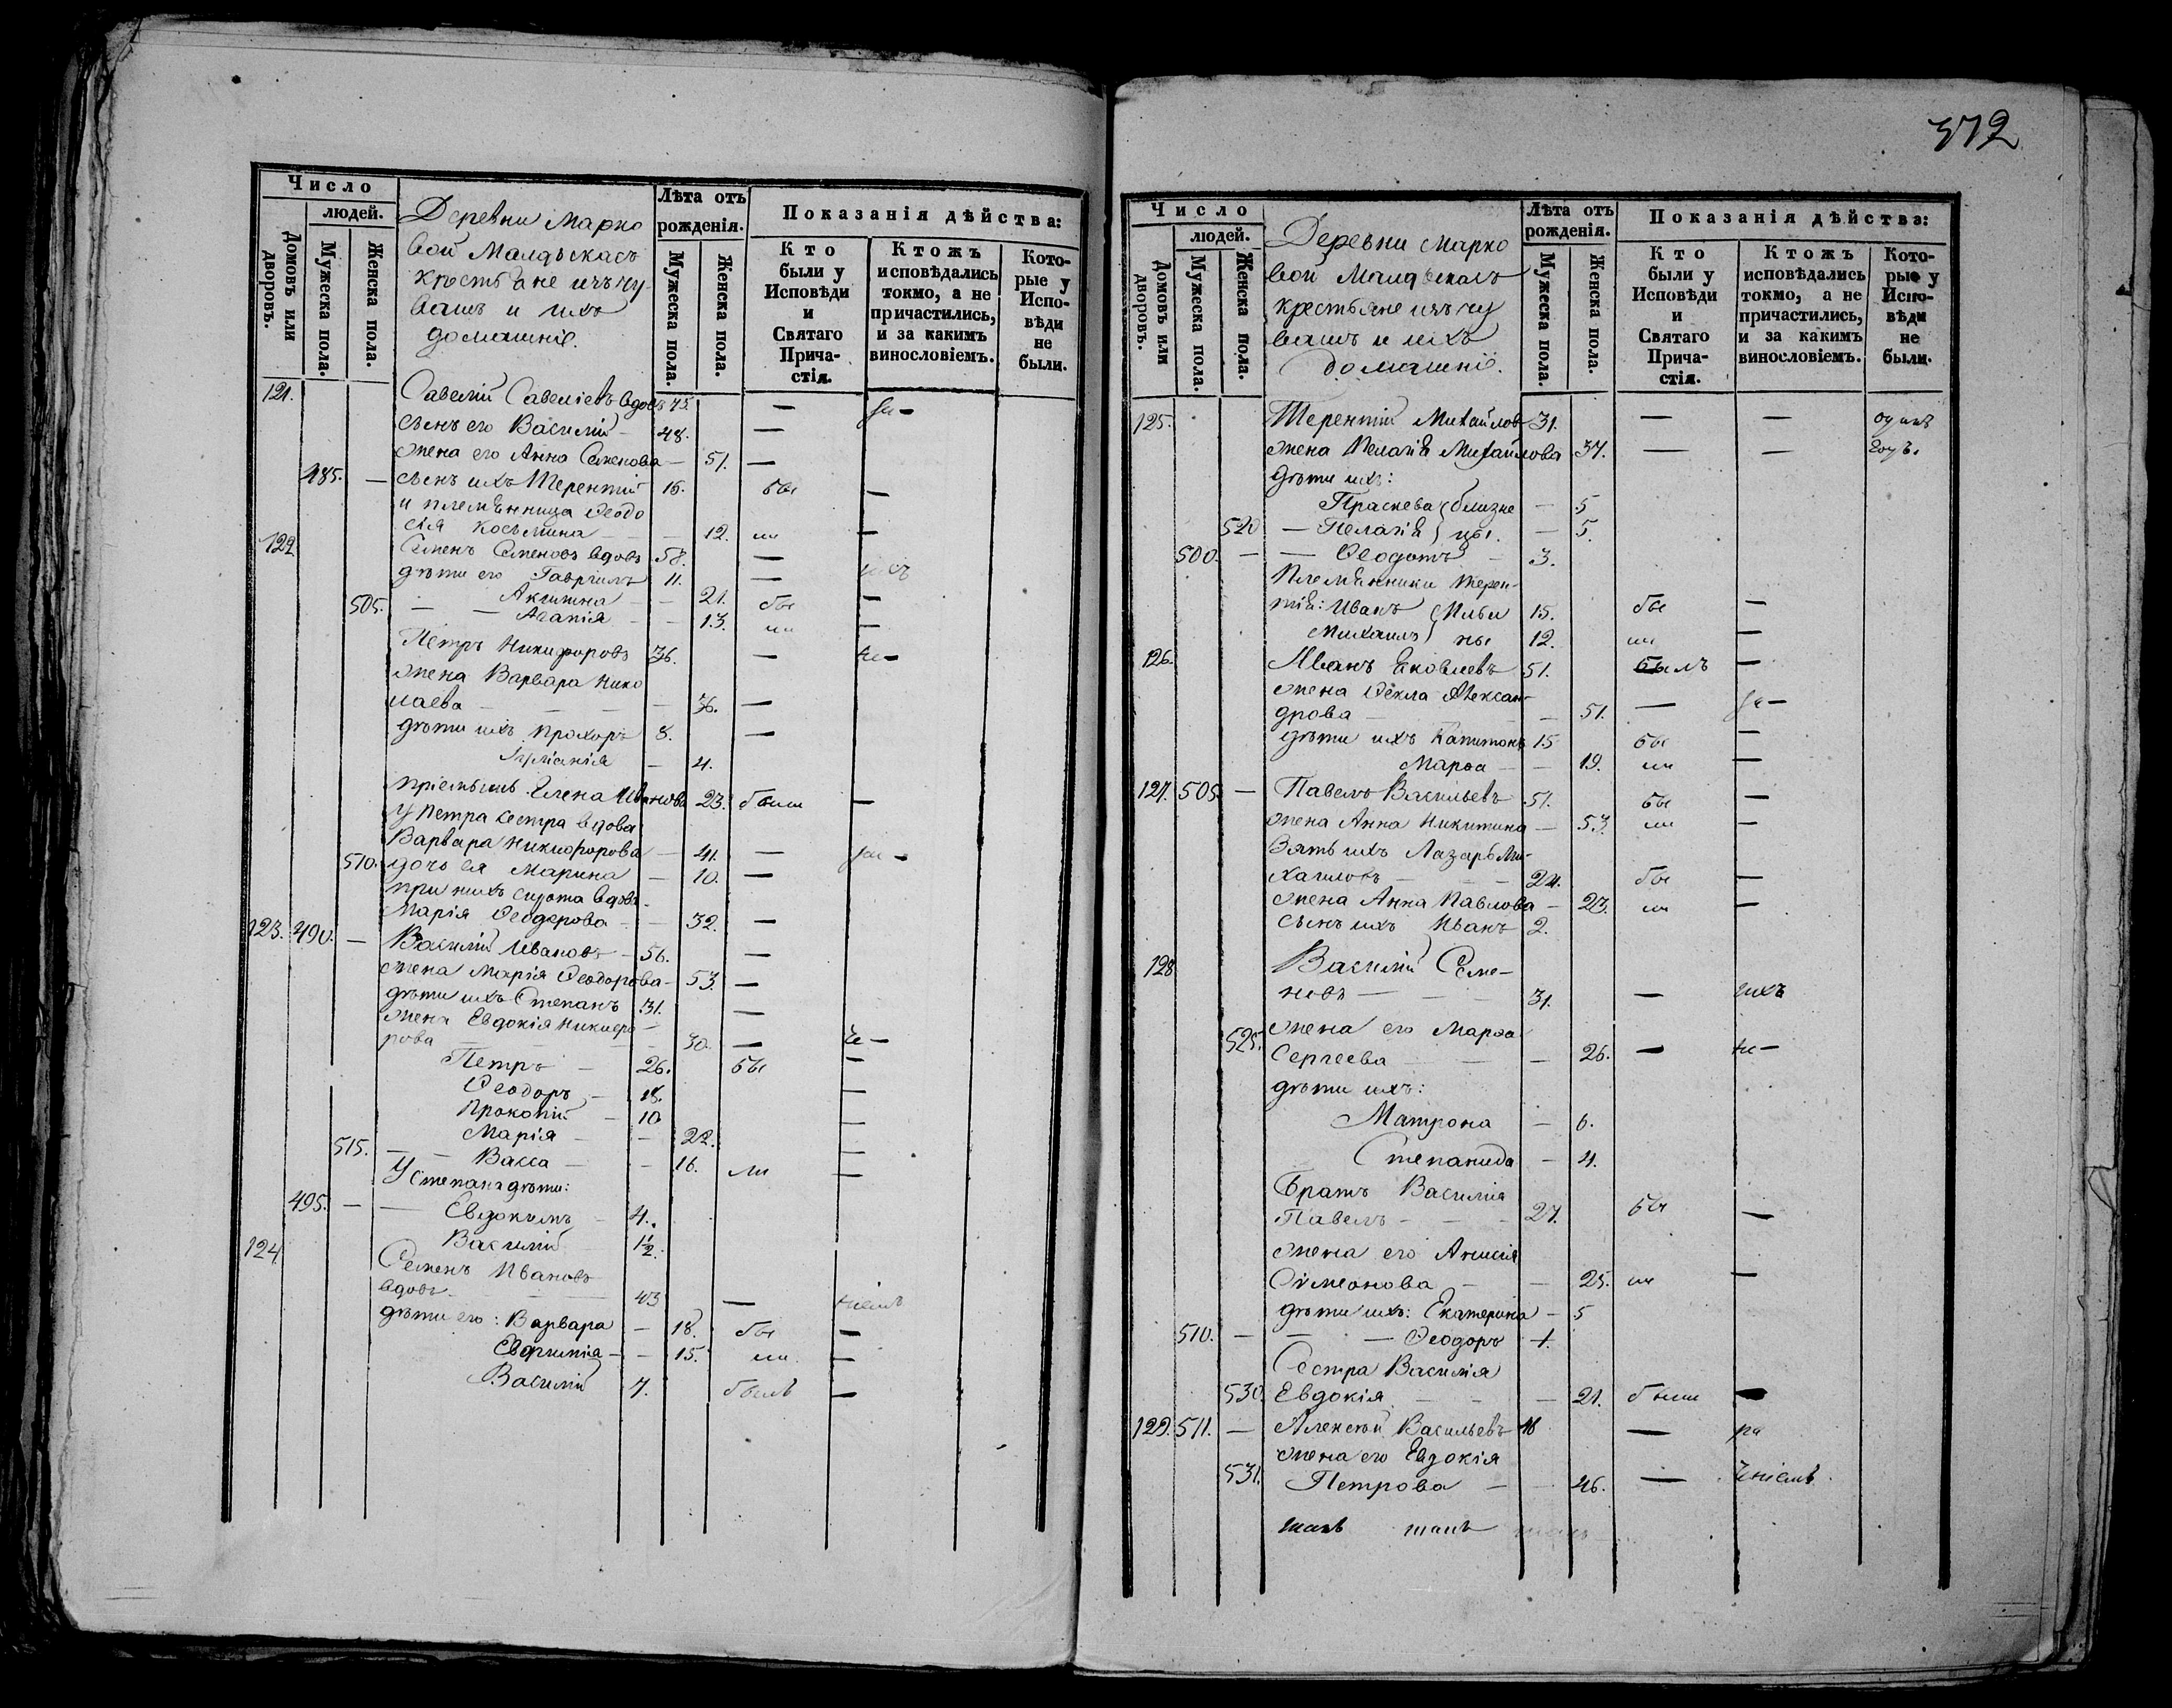 Число
людей.
Домовъ или дворовъ.
Мужеска пола.
Женска пола.
Деревни Марко
вой
крестьяне изъ чу-
вашъ и ихъ
домашніе.
Лѣта отъ
рожденія.
Мужеска пола.
Женска пола.
Показанія дѣйства:
Кто
были у
Исповѣди
и
Святаго
Прича-
стія.
Ктожъ
исповѣдались
токмо, а не
причастились,
и за какимъ
винословіемъ.
Кото-
рые у
Испо-
вѣди
не
были.
121. Савелій Савеліевъ вдовъ 75. —
сынъ его Василій — 48. —
жена его Анна Семенова — 51. —
485. — сынъ ихъ Терентій 16. бы —
и племянница Ѳеодо
сія Косьмина — 12. ли —
122. Семенъ Семеновъ вдовъ 58. —
дѣти его Гавріилъ 11. —
Акилина — 21. бы —
505. — Агапія — 13. ли —
Петръ Никифоровъ 36. —
жена Варвара Нико
лаева — 36. —
дѣти ихъ Прохоръ 8. —
— 4.
пріемышъ Елена Иванова 23. были —
у Петра сестра вдова
Варвара Никифорова — 41. —
510. дочь ея Марина — 10. —
при нихъ сирота вдова
Марія Ѳеодорова — 32. —
123. 490. — Василій Ивановъ — 56. —
жена Марія Ѳеодорова — 53. —
дѣти ихъ Степанъ 31. —
жена Евдокія Никифо
рова — 30. —
Петръ — 26. бы —
Ѳеодоръ — 18. —
Прокопій — 10 —
Марія — 22. —
515. — Васса — 16. ли —
У Степана дѣти:
495. — Евдокимъ — 4.
Василій 1½.
124. Семенъ Ивановъ
вдовъ. 43 —
дѣти его: Варвара — 18. бы —
Евфимія — 15. ли —
Василій 7. былъ —
372
Число
людей.
Домовъ или дворовъ.
Мужеска пола.
Женска пола.
Деревни Марко
вой
крестьяне изъ чу
вашъ и ихъ
домашніе.
Лѣта отъ
рожденія.
Мужеска пола.
Женска пола.
Показанія дѣйства:
Кто
были у
Исповѣди
и
Святаго
Прича-
стія.
Ктожъ
исповѣдались
токмо, а не
причастились,
и за какимъ
винословіемъ.
Кото-
рые у
Испо-
вѣди
не
были.
125. Терентій Михайловъ 31. — —
жена Пелагія Михайлова 37. — —
дѣти ихъ:
Праскева (близне — 5
520 — Пелагія) цы. — 5.
500. — — Ѳеодотъ — 3.
Племянники Терен-
тія: Иванъ (Ильи 15. бы —
Михаилъ) ны 12. ли —
126. Иванъ Яковлевъ 51. былъ —
жена Ѳекла Алексан-
дрова — 51. —
дѣти ихъ Капитонъ 15 бы —
Марѳа — 19. ли —
127. 505. — Павелъ Васильевъ 51. бы —
жена Анна Никитина — 53. ли —
Зять ихъ Лазарь Ми-
хаиловъ — 24. бы —
жена Анна Павлова — 23. ли —
сынъ ихъ Иванъ 2.
128 Василій Семе-
новъ — 31. —
жена его Марѳа
525. Сергеева — 26. —
дѣти ихъ:
Матрона — 6.
Степанида — 4.
Братъ Василія
Павелъ — 27. бы —
жена его Анисія
Симеонова — 25. ли —
дѣти ихъ: Екатерина — 5
510. — — Ѳеодоръ 1.
Сестра Василія
530. Евдокія — 21. были —
129. 511. — Алексѣй Васильевъ —
жена его Евдокія
531. Петрова — 46. —